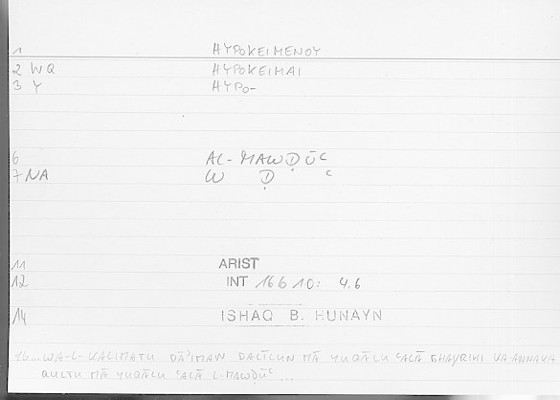 1 HYPOKEIMENOY
2 WQ HYPOKEIMAI
3 Y HYPO-
6 AL-MAWḌŪᶜ
7 NA W Ḍ ᶜ
11 ARIST
12 INT 16 b 10: 4.6
14 ISHAQ B. HUNAYN
16 ... WA-L-KALIMATU DĀʾIMAN DALĪLUN MĀ YUQĀLU ᶜALĀ GHAYRIHI KA-ANNAKA
QULTU MĀ YUQĀLU ᶜALĀ L-MAWḌŪᶜ ...